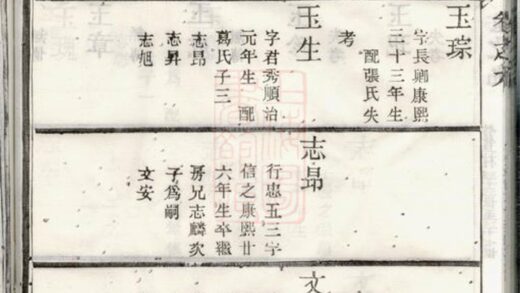 玉琮
字長卿康熙
三十三年生
配張氏失
考
玉生
字君秀順治
元年生配
葛氏子三
志昂
志昇
志旭
志昂
行忠五三字
信之康熙廿
六年生卒繼
房兄志麟次
子為嗣
文安
文